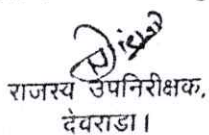 राजस्व उपनिरीक्षक,
देवराडा।